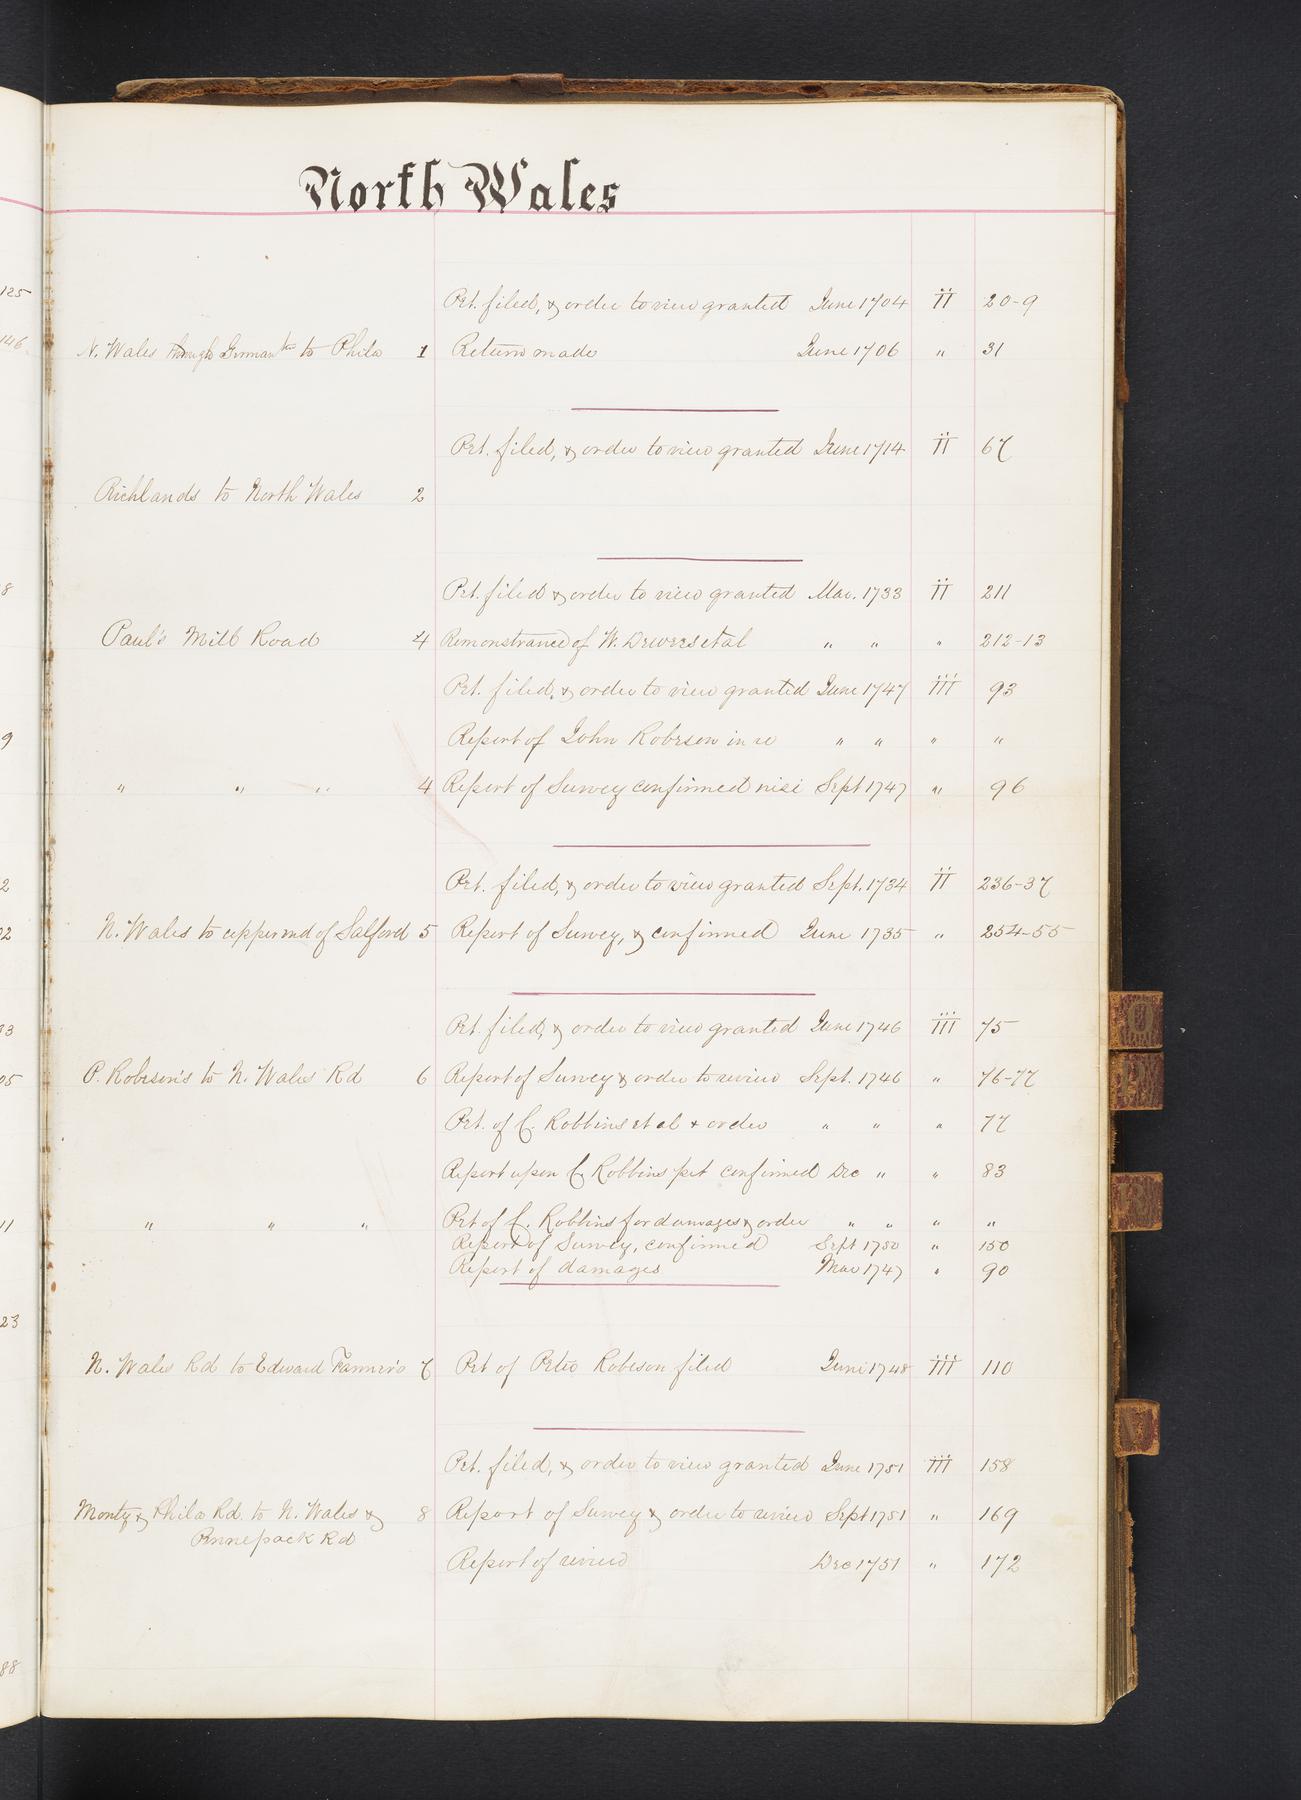 North Wales
125
Pet. filed, & order to view granted June 1704 II 20-9
146
N. Wales through Germantn to Phila 1 Return made June 1706 " 31
Pet. filed, & order to view granted June 1714 II 67
Richlands to North Wales 2
8 Pet. filed & order to view granted Mar. 1733 II 211
Paul's Mill Road 4 Remonstrance of W. Dewees et al " " " 212-13
Pet. filed, & order to view granted June 1747 III 93
9 Report of John Robeson in re " " " "
" " " 4 Report of Survey confirmed nisi Sept 1747 " 96
2 Pet. filed, & order to view granted Sept. 1734 II 236-37
02 N. Wales to upper end of Salford 5 Report of Survey, & confirmed June 1735 " 254-55
13 Pet. filed, & order to view granted June 1746 III 75
05 P. Robeson's to N. Wales Rd 6 Report of Survey & order to review Sept. 1746 " 76-77
Pet. of C. Robbins et al & order " " " 77
Report upon C Robbins pet confirmed Dec " " 83
11 " " " Pet of C. Robbins for damages & order " " " "
Report of Survey, confirmed Sept 1750 " 150
Report of damages Mar 1747 " 90
23
N. Wales Rd to Edward Farmer's 7 Pet of Peter Robeson filed June 1748 III 110
Pet. filed, & order to view granted June 1751 III 158
Montg & Phila Rd. to N. Wales & 8 Report of Survey & order to review Sept 1751 " 169
Pennepack Rd
Report of review Dec 1751 " 172
88
O
P
R
W